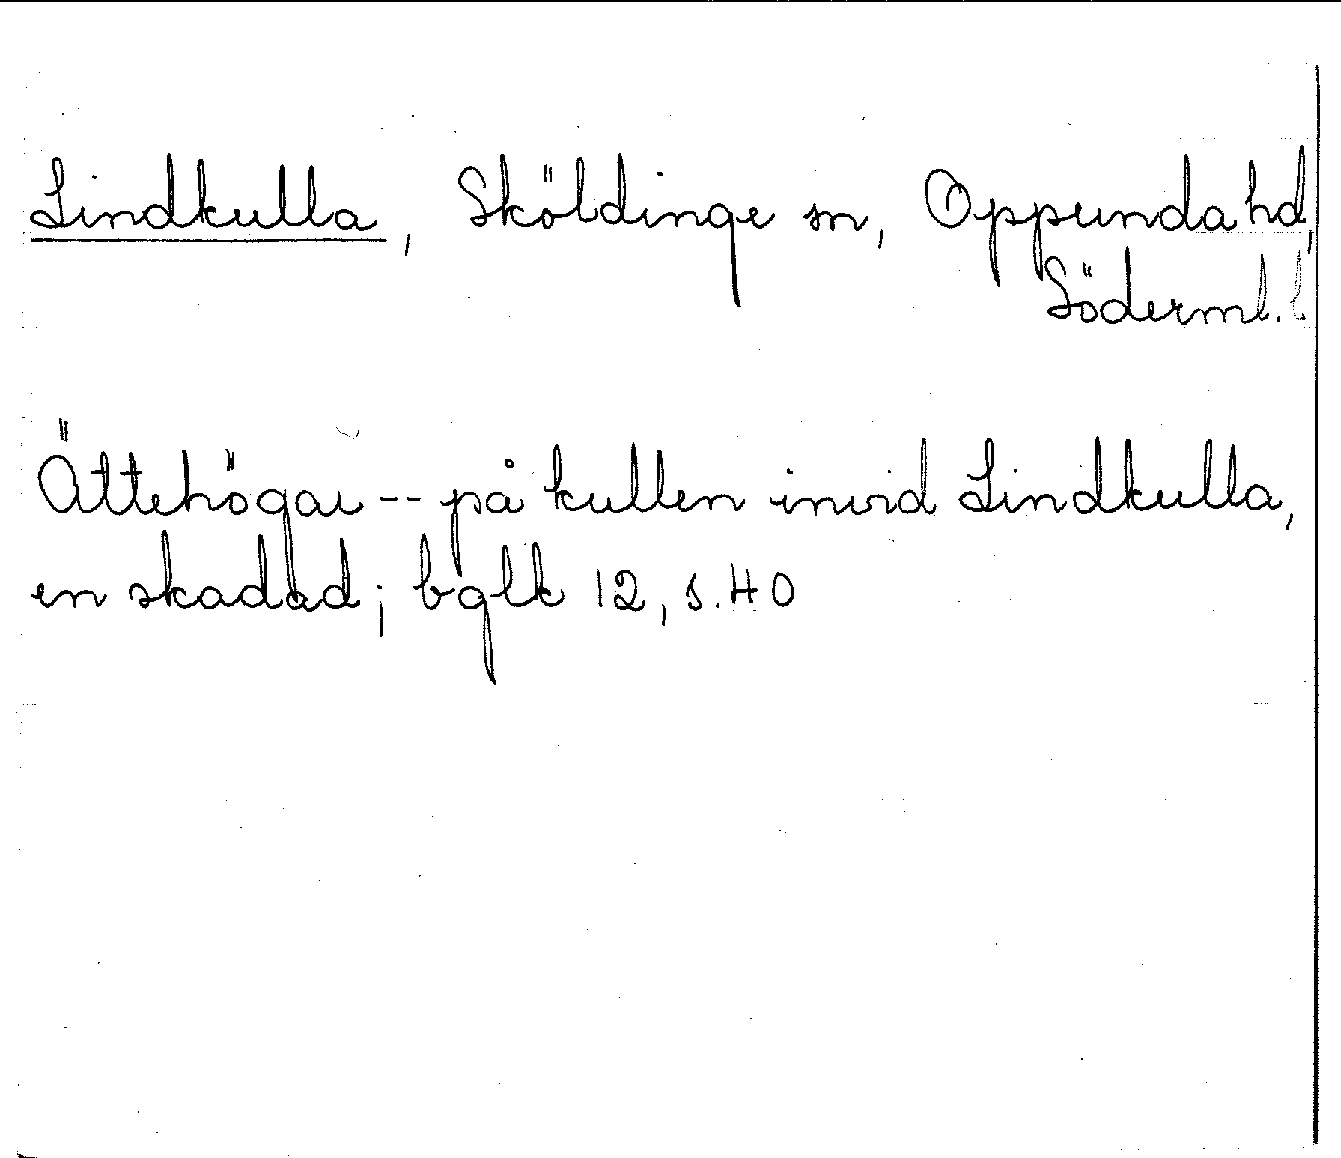 Lindkulla, Sköldinge sn, Oppunda hd,
Söderml. l
Ättehögar -- på kullen invid Lindkulla,
en skadad; bglk 12, s. 40